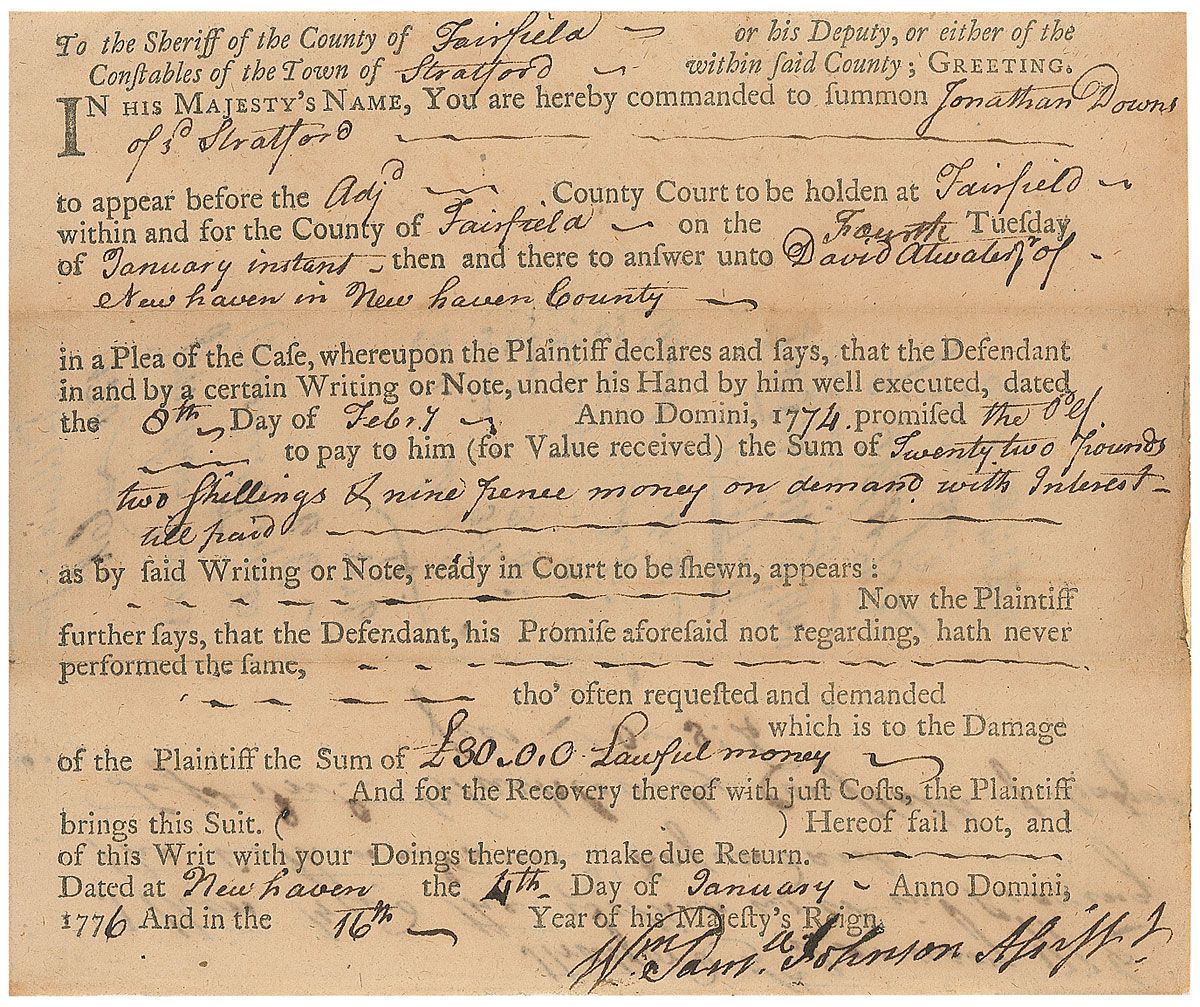 To the Sheriff of the County of Fairfield or his Deputy, or either of the
Conſtables of the Town of Stratford within ſaid County; GREETING.
IN HIS MAJESTY'S NAME, You are hereby commanded to ſummon Jonathan Downs
of sd Stratford
to appear before the Adjd County Court to be holden at Fairfield
within and for the County of Fairfield on the Fourth Tueſday
of January instant then and there to anſwer unto David Atwater Jr of
New haven in New haven County
in a Plea of the Caſe, whereupon the Plaintiff declares and ſays, that the Defendant
in and by a certain Writing or Note, under his Hand by him well executed, dated
the 8th Day of Febry Anno Domini, 1774. promiſed the
to pay to him (for Value received) the Sum of Twenty two pounds
two ſhillings & nine pence money on demand with Interest
till paid
as by ſaid Writing or Note, ready in Court to be ſhewn, appears:
Now the Plaintiff
further ſays, that the Defendant, his Promiſe aforeſaid not regarding, hath never
performed the ſame,
tho' often requeſted and demanded
which is to the Damage
of the Plaintiff the Sum of £30.0.0 Lawful money
And for the Recovery thereof with juſt Coſts, the Plaintiff
brings this Suit. ( ) Hereof fail not, and
of this Writ with your Doings thereon, make due Return.
Dated at New haven the 4th Day of January Anno Domini,
1776 And in the 16th Year of his Majeſty's Reign.
Wm Saml Johnson Aſsiſt